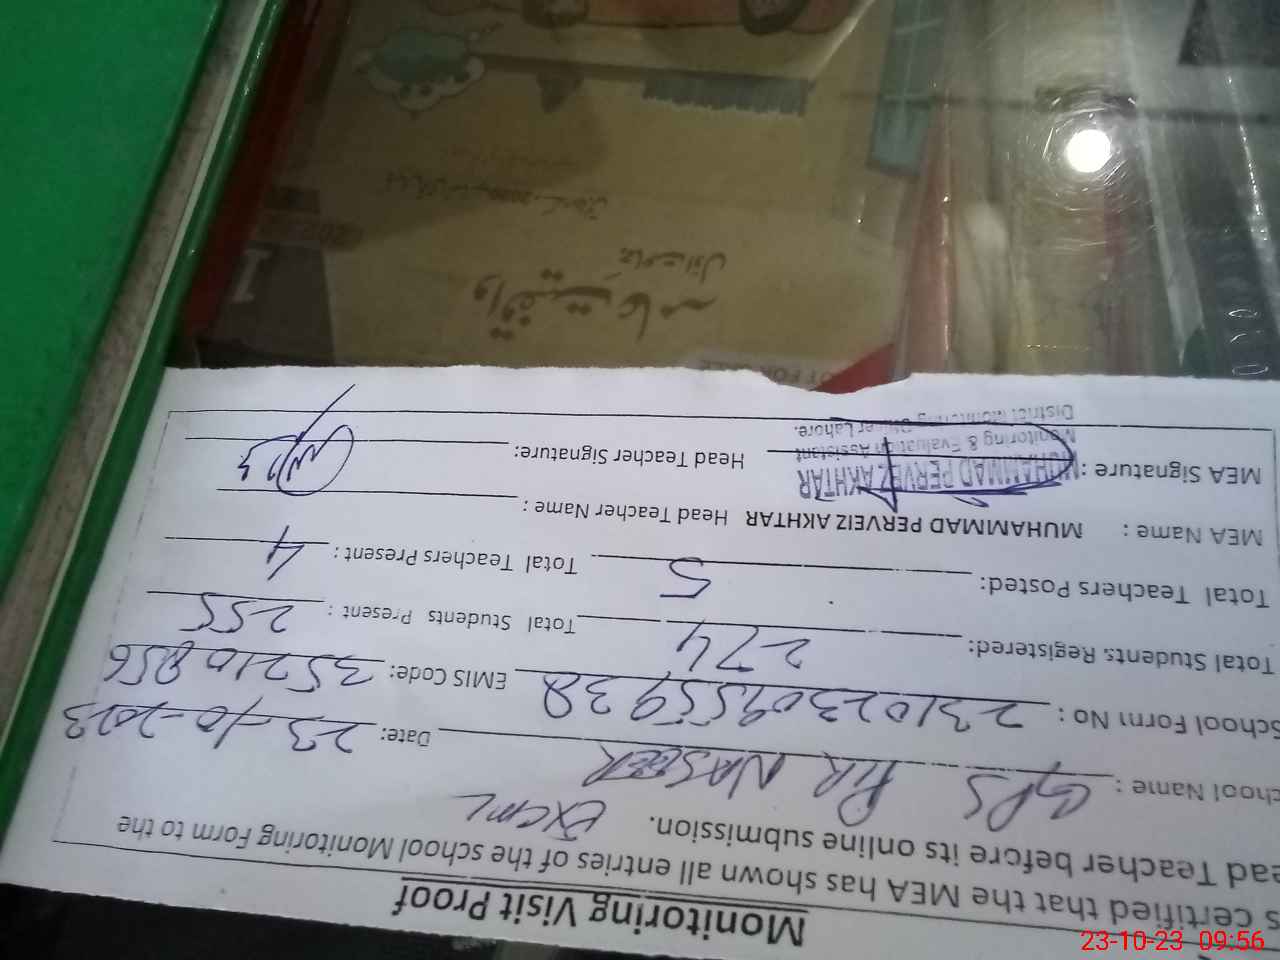 Monitoring Visit Proof
s certified that the MEA has shown all entries of the school Monitoring Form to the
ead Teacher before its online submission.
chool Name : GPS PIR NASEER Date: 23-10-2023
School Form No : EMIS Code: 35210856
Total Students Registered: 274 Total Students Present : 255
Total Teachers Posted: 5 Total Teachers Present : 4
MEA Name : MUHAMMAD PERVEIZ AKHTAR Head Teacher Name :
MEA Signature : Head Teacher Signature:
MUHAMMAD PERVEZ AKHTAR
Monitoring & Evaluation Assistant
District Monitoring Officer Lahore.
واقفیت عامہ
جماعت اول
1
23-10-23 09:56